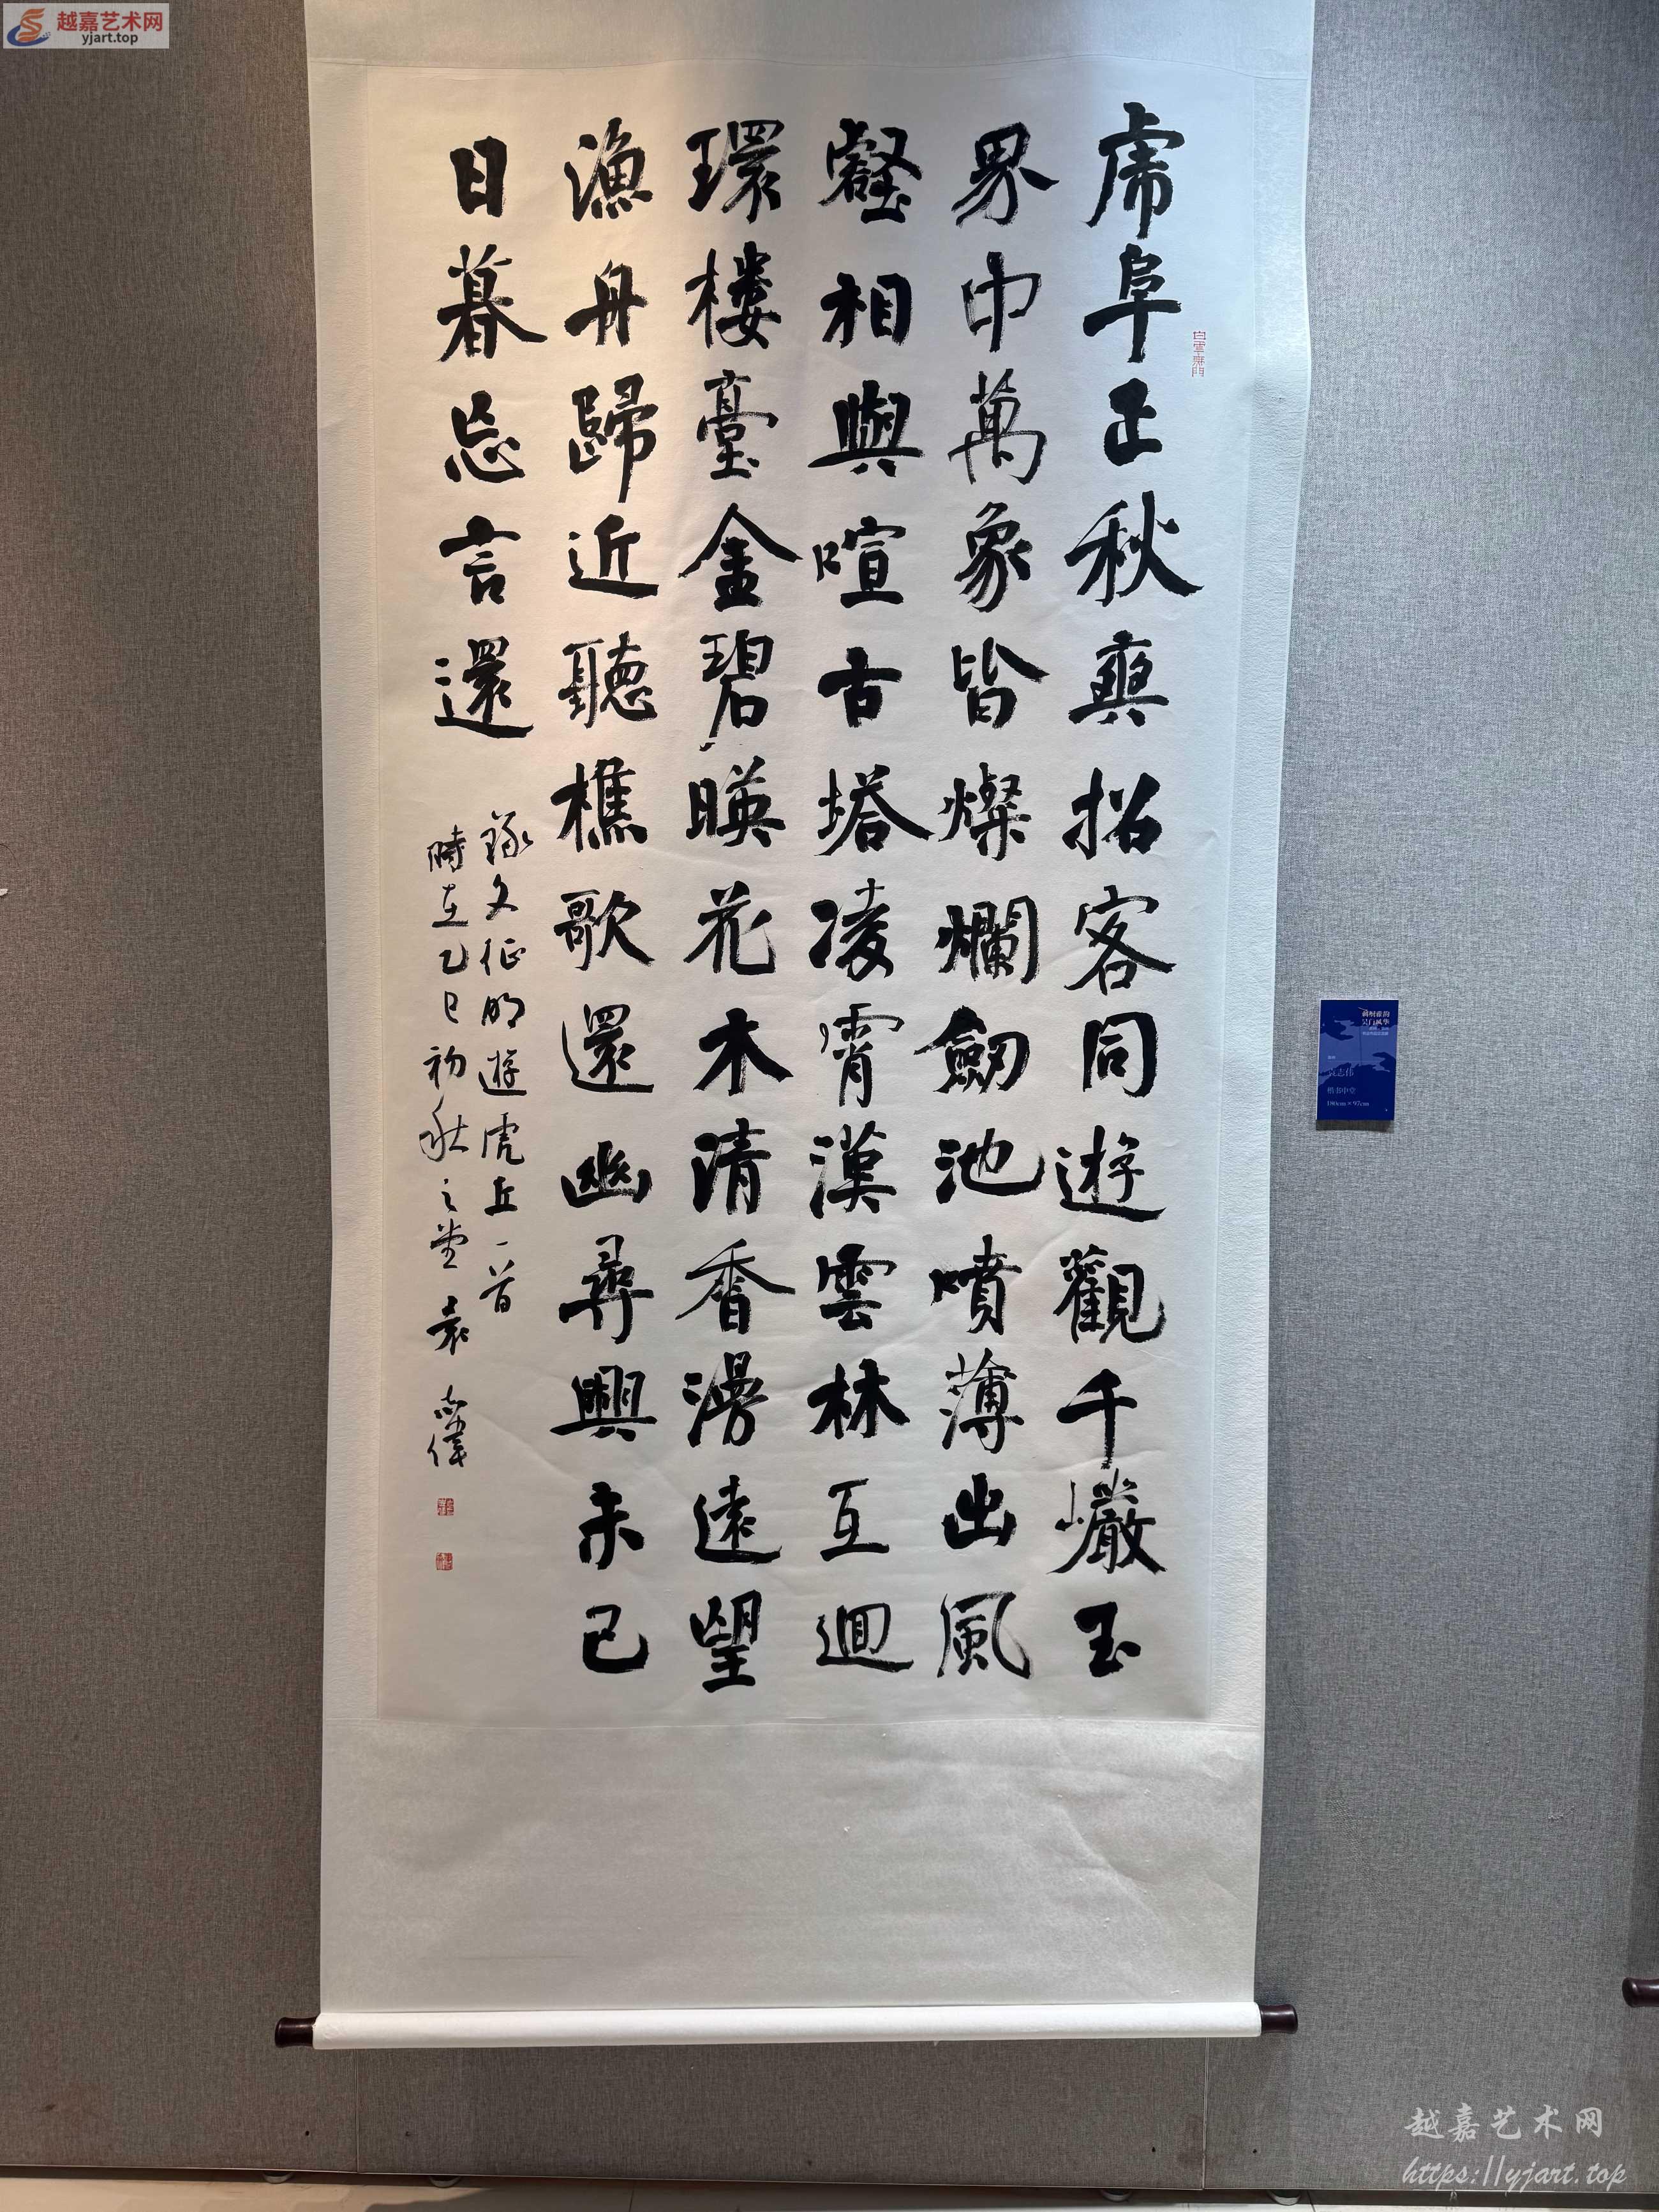 越嘉艺术网
yjart.top
虎阜正秋爽招客同遊觀千巖玉
界中萬象皆燦爛劒池噴薄出風
壑相與喧古塔凌霄漢雲林互迴
環樓臺金碧暎花木清香滿遠望
漁舟歸近聽樵歌還幽尋興未已
日暮忘言還
錄文征明遊虎丘一首
時在乙巳初秋之望 袁志偉
吴门风华
袁志伟
楷书中堂
180cm×97cm
越嘉艺术网
https://yjart.top